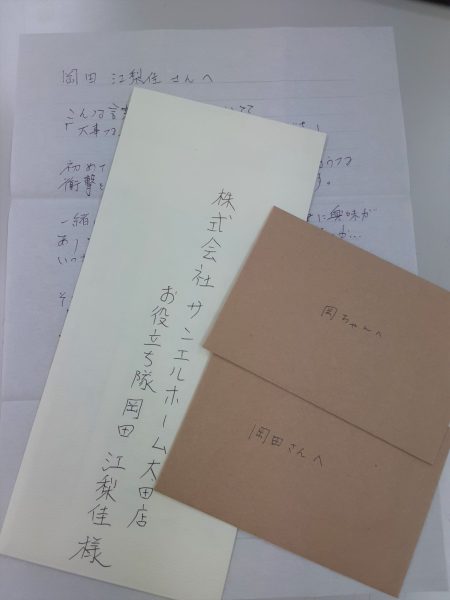 岡田 江梨佳さんへ
こんな言
「大事な
初めて
衝撃を
す。
一緒
に興味が
あり
いつ
株式会社サンエルホーム太田店
お役立ち隊 岡田 江梨佳 様
岡ちゃんへ
岡田さんへ